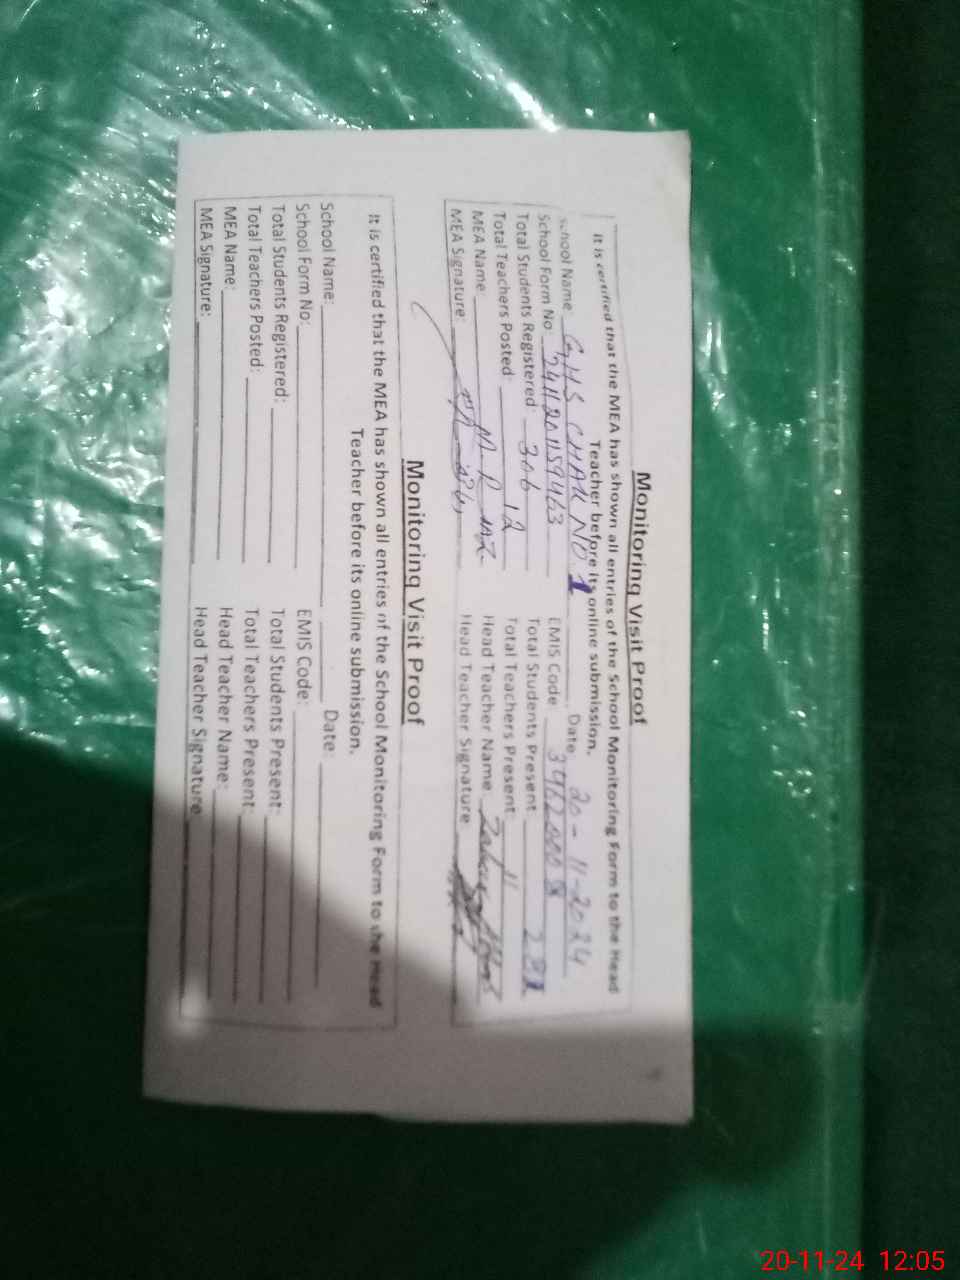 Monitoring Visit Proof
It is certified that the MEA has shown all entries of the School Monitoring Form to the Head
Teacher before its online submission.
School Name: GHS CHAK NO 1 Date: 20-11-2024
School Form No: EMIS Code
Total Students Registered: 306 Total Students Present
Total Teachers Posted: 12 Total Teachers Present: 11
MEA Name: Head Teacher Name
MEA Signature: Head Teacher Signature
Monitoring Visit Proof
It is certified that the MEA has shown all entries of the School Monitoring Form to the Head
Teacher before its online submission.
School Name: Date:
School Form No: EMIS Code:
Total Students Registered: Total Students Present:
Total Teachers Posted: Total Teachers Present:
MEA Name: Head Teacher Name:
MEA Signature: Head Teacher Signature
20-11-24 12:05